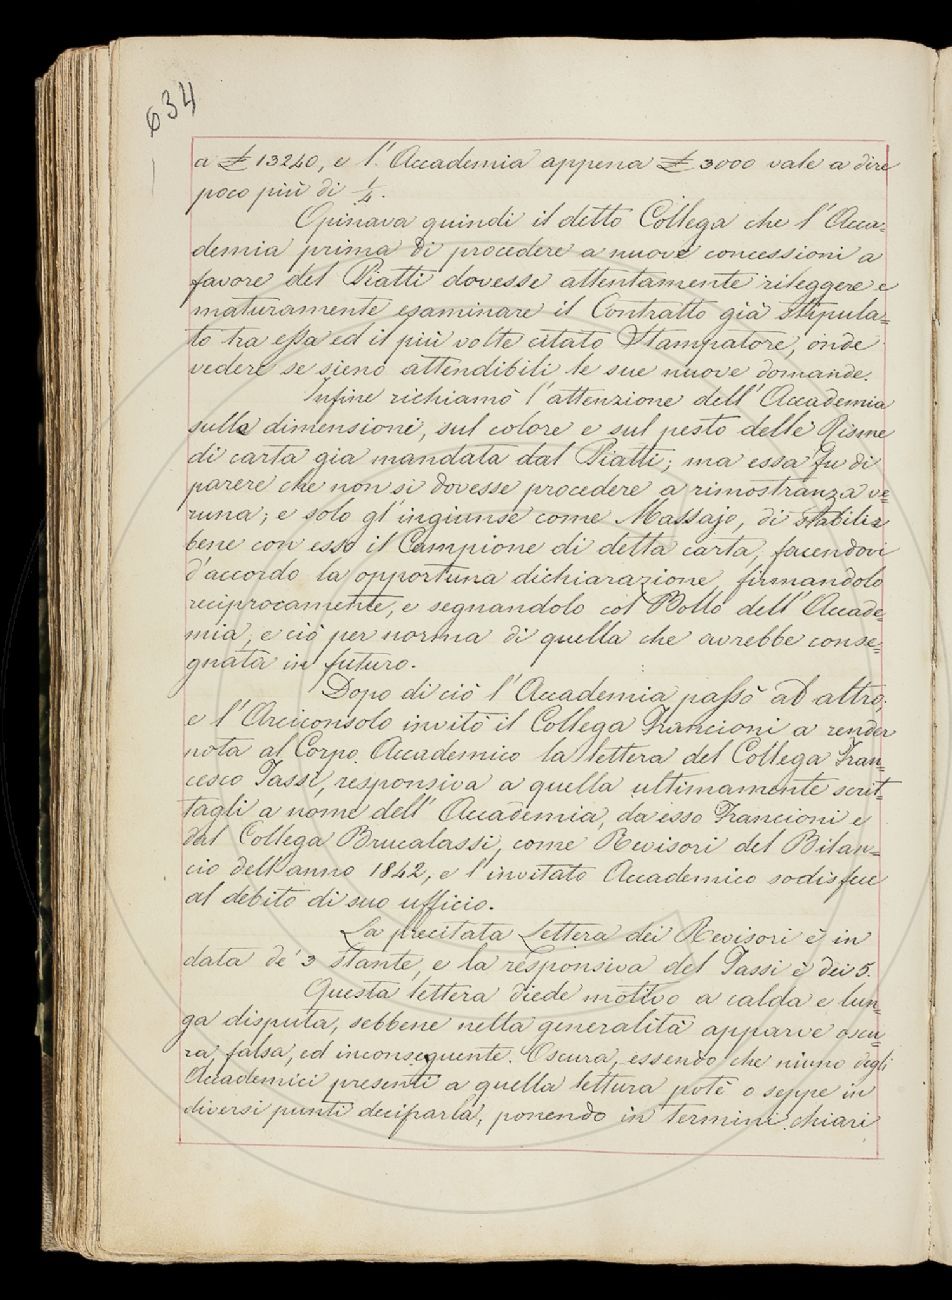 634
a £ 13240, e l'Accademia appena £ 3000 vale a dire
poco più di 1/4.
Opinava quindi il detto Collega che l'Acca=
demia prima di procedere a nuove concessioni a
favore del Piatti dovesse attentamente rileggere e
maturamente esaminare il Contratto già stipula=
to tra essa ed il più volte citato Stampatore, onde
vedere se sieno attendibili le sue nuove domande.
Infine richiamò l'attenzione dell'Accademia
sulle dimensioni, sul colore e sul pesto delle Risme
di carta già mandata dal Piatti; ma essa fu di
parere che non si dovesse procedere a rimostranza ve=
runa; e solo gl'ingiunse come Massajo, di stabilir
bene con esso il Campione di detta carta, facendovi
d'accordo la opportuna dichiarazione, firmandolo
reciprocamente, e segnandolo col Bollo dell'Accade=
mia, e ciò per norma di quella che avrebbe conse=
gnata in futuro.
Dopo di ciò l'Accademia passò ad altro,
e l'Arciconsolo invitò il Collega Francioni a render
nota al Corpo Accademico la lettera del Collega Fran=
cesco Tassi, responsiva a quella ultimamente scrit=
tagli a nome dell'Accademia, da esso Francioni e
dal Collega Brucalassi, come Revisori del Bilan=
cio dell'anno 1842, e l'invitato Accademico sodisfece
al debito di suo ufficio.
La precitata Lettera dei Revisori è in
data de' 3 stante, e la responsiva del Tassi è dei 5.
Questa lettera diede motivo a calda e lun=
ga disputa, sebbene nella generalità apparve oscu=
ra, falsa, ed inconseguente. Oscura, essendo che niuno degli
Accademici presenti a quella lettura potè o seppe in
diversi punti deciferarla, ponendo in termini chiari